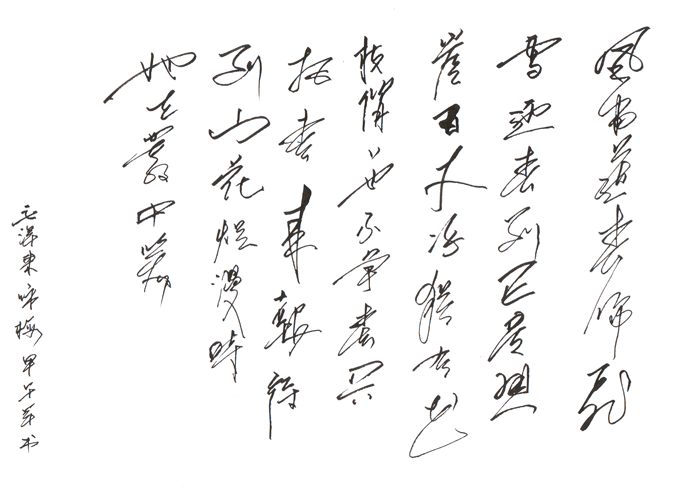 風雨送春归飛
雪迎春到已是懸
崖百丈冰猶有花
枝俏〻也不争春只
把春来報待
到山花烂漫時
她在叢中笑
毛泽東咏梅 甲子年书